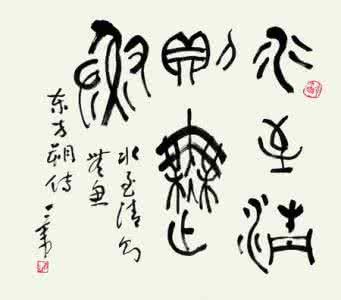 水至清
則無
魚
水至清则
無魚
东方朔传